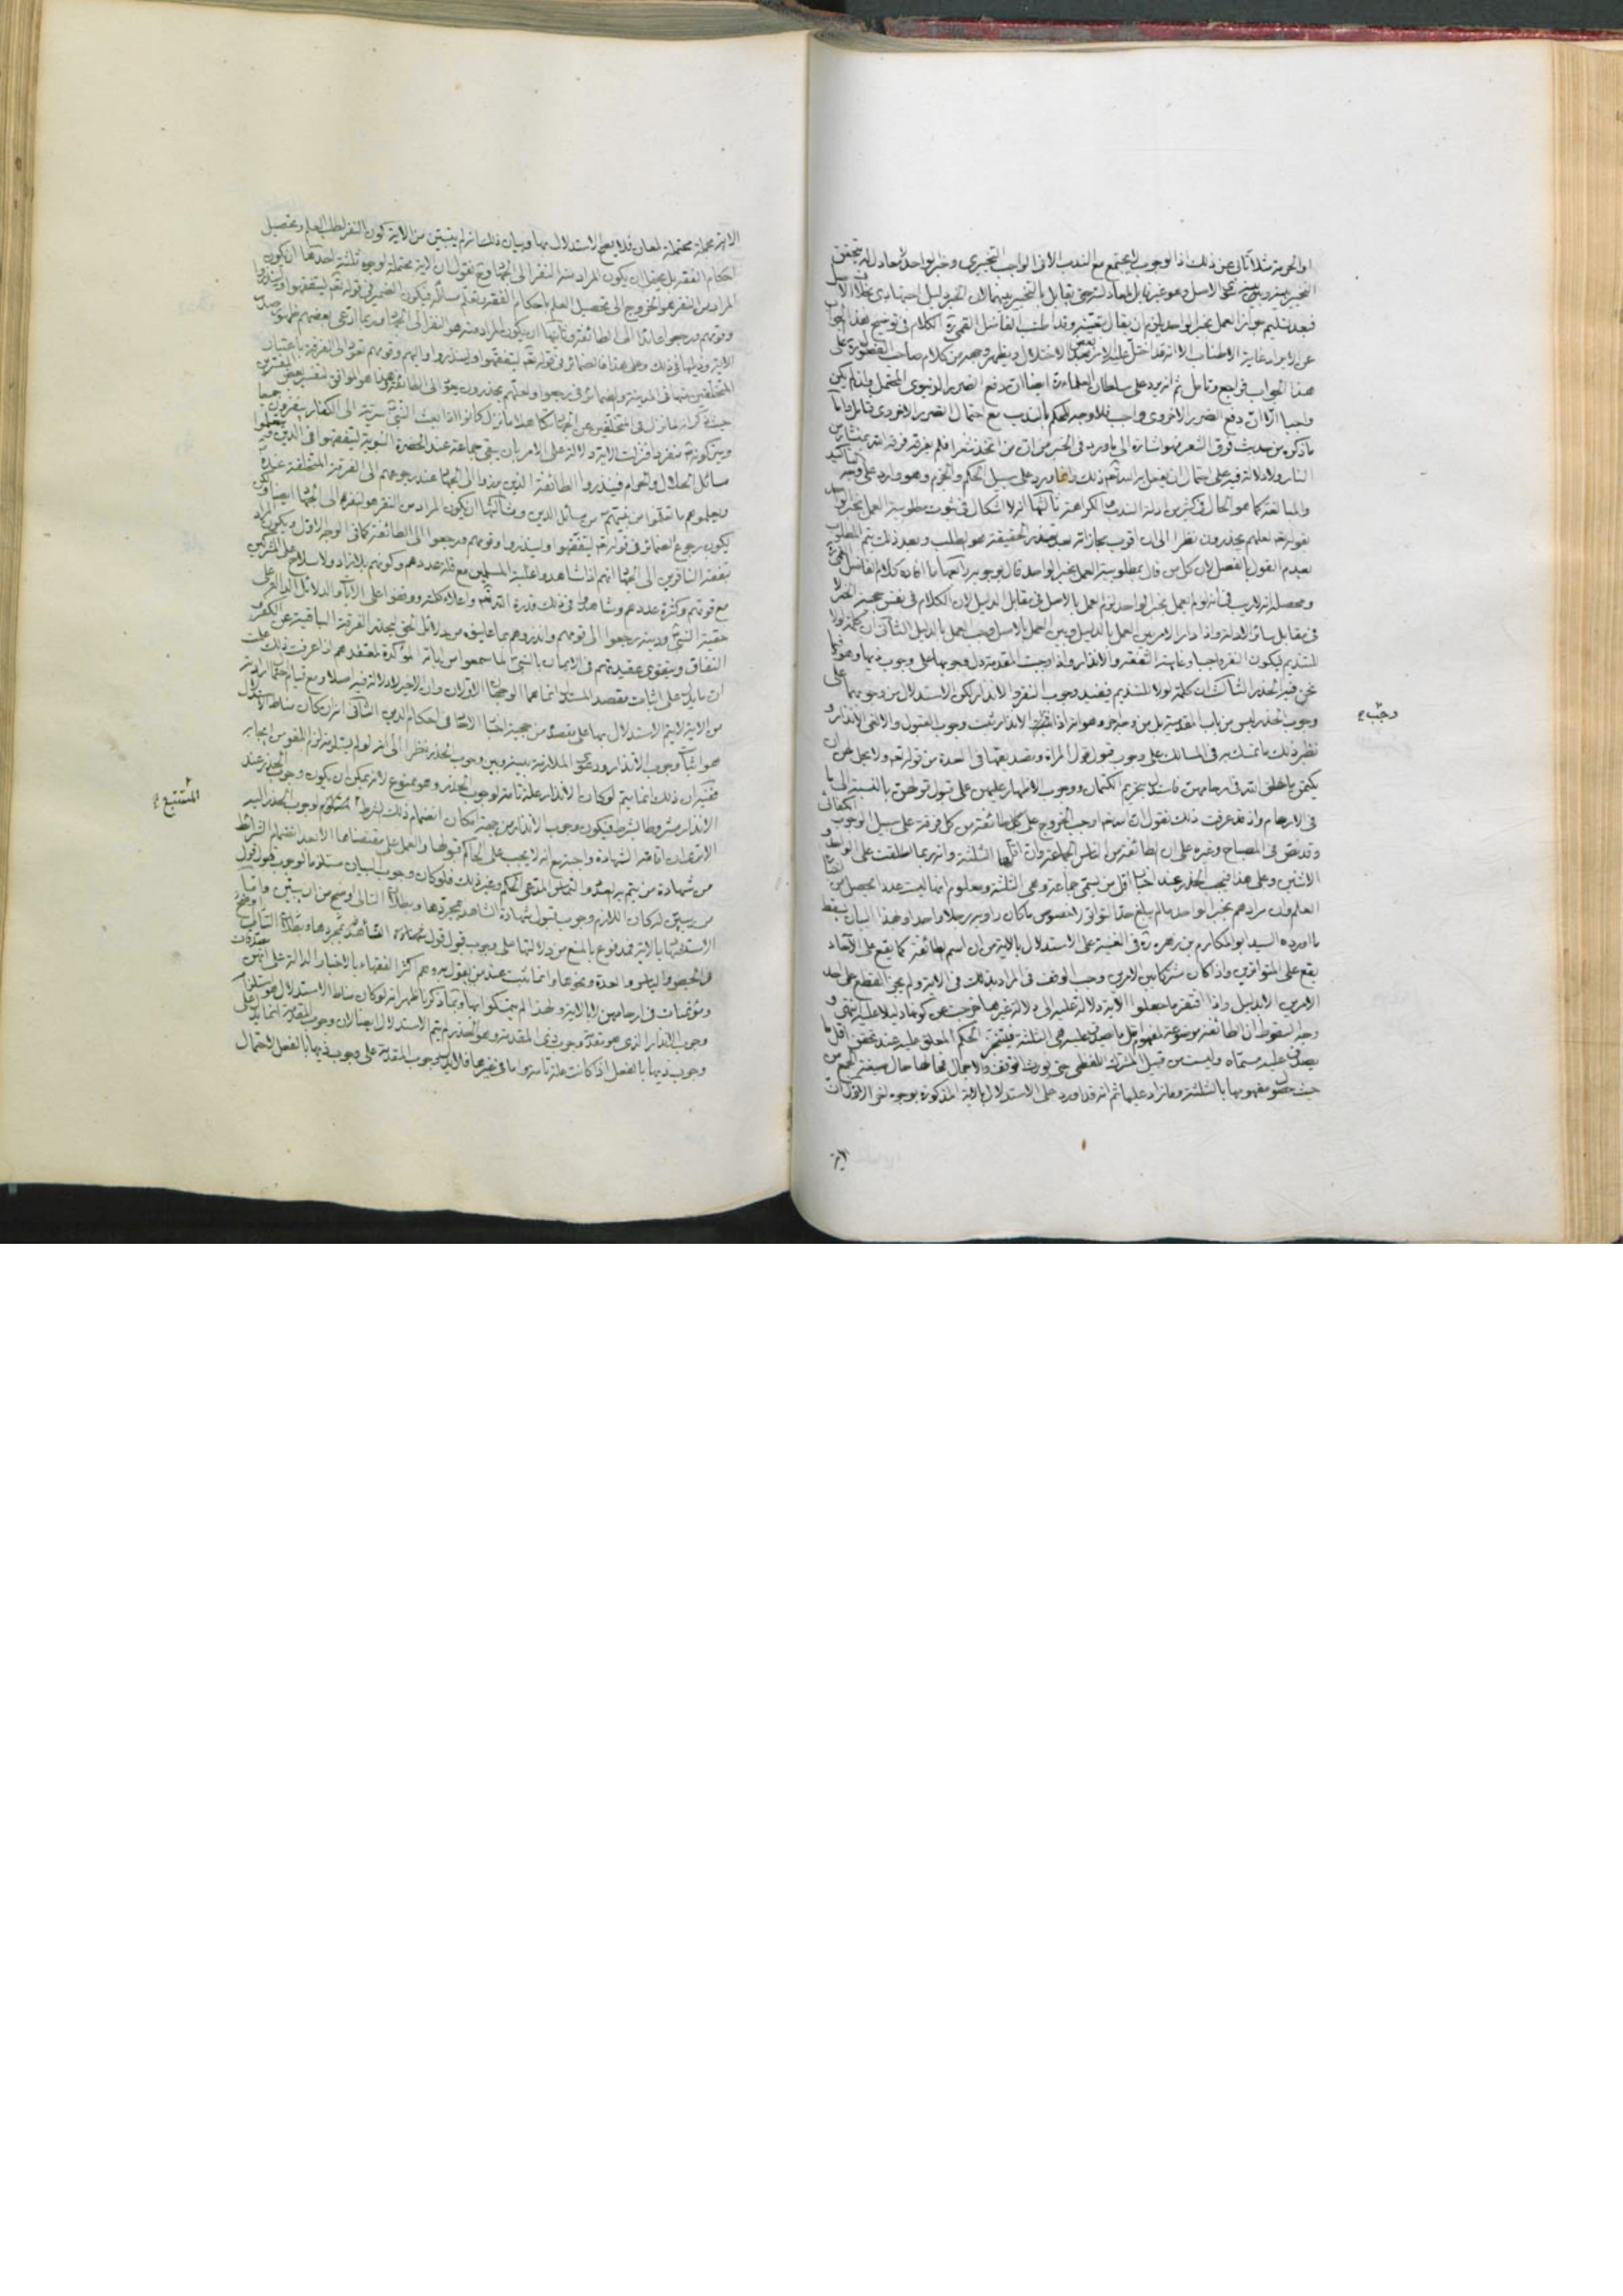 او الحرمة مثلا تأتى عن ذلك اذ الوجوب لا يجتمع مع الندب الا فى الواجب التخييرى وخبر الواحد
التخيير بينه وبين الاصل وهو غير قابل
فبعد تسليم جواز العمل بخبر الواحد لزم ان يقال بتعينه وقد اطنب الفاضل القمى ره الكلام فى توضيح هذا الجواب
عن الايراد غاية الاطناب الا انه قد اختل عليه الامر بعض الاختلال ويظهر وجهه من كلام صاحب الفصول ره على
هذا الجواب فراجع وتامل ثم انه يرد على سلطان العلماء ره ايضا ان دفع الضرر الدنيوى المحتمل وان لم يكن
واجبا الا ان دفع الضرر الاخروى واجب فلا وجه للحكم بالندب مع احتمال الضرر الاخروى قطعا واما
ما ذكره من حديث فرق الشعر فهو اشارة الى ما ورد فى الخبر من ان من اتخذ شعرا فلم يفرقه فرقه الله بمنشار من
النار ولا دلالة فيه على احتمال ان يفعل الله تعم ذلك وانما ورد على سبيل الحكم والجزم وهو وارد على وجه التاكيد
والمبالغة كما هو الحال فى كثير من ادلة الندب والكراهة ثالثها انه لا اشكال فى ثبوت مطلوبية العمل بخبر الواحد
بقوله تعم لعلهم يحذرون نظرا الى ان اقرب مجازاته بعد تعذر الحقيقة هو الطلب وبعد ذلك يتم المطلوب
بعدم القول بالفصل لان كل من قال بمطلوبية العمل بخبر الواحد قال بوجوبه رابعها ما افاده كلام الفاضل القمى ره
ومحصله انه لا ريب فى انه لو لم يعمل بخبر الواحد لزم العمل بالاصل فى مقابل الدليل لان الكلام فى نفس حجية الخبر لا
فى مقابل سائر الادلة واذا دار الامر بين العمل بالدليل وبين العمل بالاصل وجب العمل بالدليل الثانى ان كلمة لولا
للتنديم فيكون النفر واجبا وغايته التفقه والانذار واذا وجبت المقدمة دل وجوبها على وجوب ذيها وهو فيما
نحن فيه الحذر الثالث ان كلمة لولا للتنديم فيفيد وجوب النفر والانذار لكن الاستدلال من وجوبهما على
وجوب الحذر ليس من باب المقدمة بل من وجه آخر وهو انه اذا وجب الانذار ثبت وجوب القبول والا لغى الانذار و
نظير ذلك ما تمسك به فى المسالك على وجوب قبول قول المراة وتصديقها فى العدة من قوله تعم ولا يحل لهن ان
يكتمن ما خلق الله فى ارحامهن فاستدل بتحريم الكتمان ووجوب الاظهار عليهن على قبول قولهن بالنسبة الى ما
فى الارحام واذ قد عرفت ذلك نقول ان الله سبحانه اوجب الخروج على كل طائفة من كل فرقة على سبيل الوجوب الكفائى
وقد نص فى المصباح وغيره على ان الطائفة من الناس الجماعة وان اقلها الثلثة وانه ربما اطلقت على الواحد و
الاثنين وعلى هذا فيجب الحذر عند اخبار اقل من يسمى جماعة وهى الثلثة ومعلوم انها ليست عددا يحصل من
العلم وان مرادهم بخبر الواحد ما لم يبلغ حد التواتر لا خصوص ما كان راويه رجلا واحدا وبهذا البيان يسقط
ما اورده السيد ابو المكارم بن زهره ره فى الغنية على الاستدلال بالاية من ان اسم طائفة كما يقع على الاحاد
يقع على المتواترين واذا كان مشتركا بين الامرين وجب الوقف فى المراد بذلك فى الاية ولم يجز القطع على احد
الامرين الا بدليل واذا افتقر ما جعلوا الاية دلالة عليه الى دلالة غيرها خرجت من كونها دليلا عليه انتهى و
وجه السقوط ان الطائفة موضوعة لمفهوم اقل ما يصدق عليه هى الثلثة فيتحقق الحكم المعلق عليه عند تحقق اقل ما
يصدق عليه مسماه وليست من قبيل المشترك اللفظى حتى يورث التوقف والاجمال فحالها حال صيغة الجمع من
حيث حصول مفهومها بالثلثة وما زاد عليها ثم انه قد اورد على الاستدلال بالاية المذكورة بوجوه اخر الاول ان
وجب
الاية
الاية مجملة محتملة لمعان فلا يصح الاستدلال بها وبيان ذلك انه لم يتبين من الاية كون النفر لطلب العلم وتحصيل
احكام الفقه بل يحتمل ان يكون المراد منه النفر الى الجهاد وح نقول ان الاية محتملة لوجوه ثلثة احدها ان يكون
المراد من النفر هو الخروج الى تحصيل العلم باحكام الفقه وتعلم مسائله فيكون الضمير فى قوله تعم ليتفقهوا ولينذروا
وقومهم ورجعوا عائدا الى الطائفة وثانيها ان يكون المراد منه هو النفر الى الجهاد وربما ادعى بعضهم ظهور صدر
الاية وذيلها فى ذلك وعلى هذا فالضمائر فى قوله تعم ليتفقهوا ولينذروا واليهم وقومهم تعود الى الفرقة باعتبار
المتخلفين منها فى المدينة والضمائر فى رجعوا ولعلهم يحذرون يعود الى الطائفة وهذا هو الموافق لتفسير بعض المفسرين
حيث ذكر انه لما نزل فى المتخلفين عن الجهاد كما هذا ما نزل كانوا اذا بعث النبى ص سرية الى الكفار ينفرون جميعا
ويتركونه ص منفردا فنزلت الاية دلالة على الامر بان يبقى جماعة عند الحضرة النبوية ليتفقهوا فى الدين ويتعلموا
مسائل الحلال والحرام فينذروا الطائفة الذين نفروا الى الجهاد عند رجوعهم الى الفرقة المتخلفة عنده
ويعلموهم ما تعلموا من مسائل الدين وثالثها ان يكون المراد من النفر هو النفر الى الجهاد ايضا ولكن
يكون رجوع الضمائر فى قوله تعم ليتفقهوا ولينذروا وقومهم ورجعوا الى الطائفة كما فى الوجه الاول ويكون المراد
بتفقه النافرين الى الجهاد انهم اذا شاهدوا غلبة المسلمين مع قلة عددهم وكونهم بلا زاد ولا سلاح على المشركين
مع قوتهم وكثرة عددهم وشاهدوا فى ذلك قدرة الله تعم واعلاء كلمته ووقفوا على الايات والدلائل الدالة على
حقية النبى ص ودينه رجعوا الى قومهم وانذروهم بما عاينوه من دلائل الحق
النفاق ويتقوى عقيدتهم فى الايمان بالنبى ص لما سمعوا من اياته المؤكدة لمعتقدهم اذا عرفت ذلك علمت
ان ما يدل على اثبات مقصد المستدل انما هما الوجهان الاولان وان الاخير لا دلالة فيه اصلا ومع قيام احتمال ارادته
من الاية لا يتم الاستدلال بها على مقصده من حجية اخبار الاحاد فى احكام الدين الثانى انه ان كان مناط الاستدلال
هو اثبات وجوب الانذار ودعوى الملازمة بينه وبين وجوب الحذر نظرا الى انه لو لم يقبل منه لزم اللغو من ايجابه
ففيه ان ذلك انما يتم لو كان الانذار علة تامة لوجوب الحذر وهو ممنوع لانه يمكن ان يكون وجوب الحذر عند
الانذار مشروطا بشرط فيكون وجوب الانذار من جهة امكان انضمام ذلك الشرط المستتبع لوجوب الحذر اليه
الا ترى ان اقامة الشهادة واجبة مع انه لا يجب على الحاكم قبولها والعمل على مقتضاها الا بعد انضمام الشرائط
من شهادة من يتم به العدد والتماس المدعى الحكم وغير ذلك فلو كان وجوب البيان مستلزما لوجوب قبول قول
من يبين لكان اللازم وجوب قبول شهادة الشاهد بمجردها وبطلان التالى اوضح من ان يبين واما
الاستدلال بالاية فمدفوع بالمنع من دلالتها على وجوب قبول قول
فى الحيض والطهر والعدة ونحوها وانما ثبت عند من يقول به وهم اكثر الفقهاء بالاخبار الدالة على انهن مصدقات
ومؤتمنات فى ارحامهن لا بالاية ولهذا لم يتمسكوا بها وبما ذكرنا ظهر انه لو كان مناط الاستدلال هو استلزام
وجوب الانذار الذى هو مقدمة وجوب ذى المقدمة وهو الحذر لم يتم الاستدلال ايضا لان وجوب المقدمة انما يدل على
وجوب ذيها بالفعل اذا كانت علة تامة واما فى غيرها فلا يدل وجوب المقدمة على وجوب ذيها بالفعل لاحتمال
المستتبع